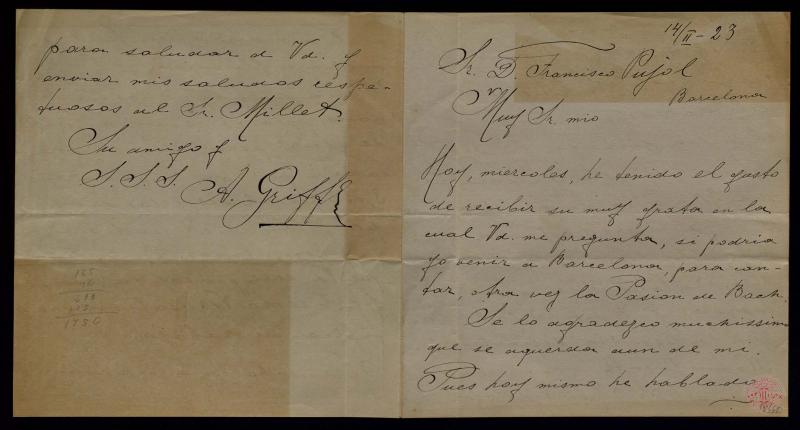 14/II - 23
Sr. D. Francisco Pujol
Barcelona
Muy Sr. mio
Hoy, miercoles, he tenido el gusto
de recibir su muy grata en la
cual Vd. me pregunta, si podria
yo venir a Barcelona, para can-
tar, otra vez la Pasion de Bach.
Se lo agradezco muchissimo
que se aquerda aun de mi.
Pues hoy mismo he hablado
para saludar a Vd. y
enviar mis saludos respe-
tuosos al Sr. Millet.
Su amigo y
S.S.S. A. Griff
165